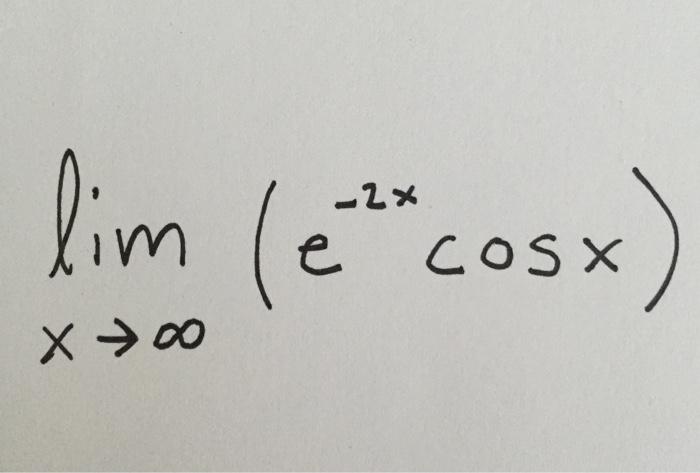 lim (e^-2x cosx)
x → ∞